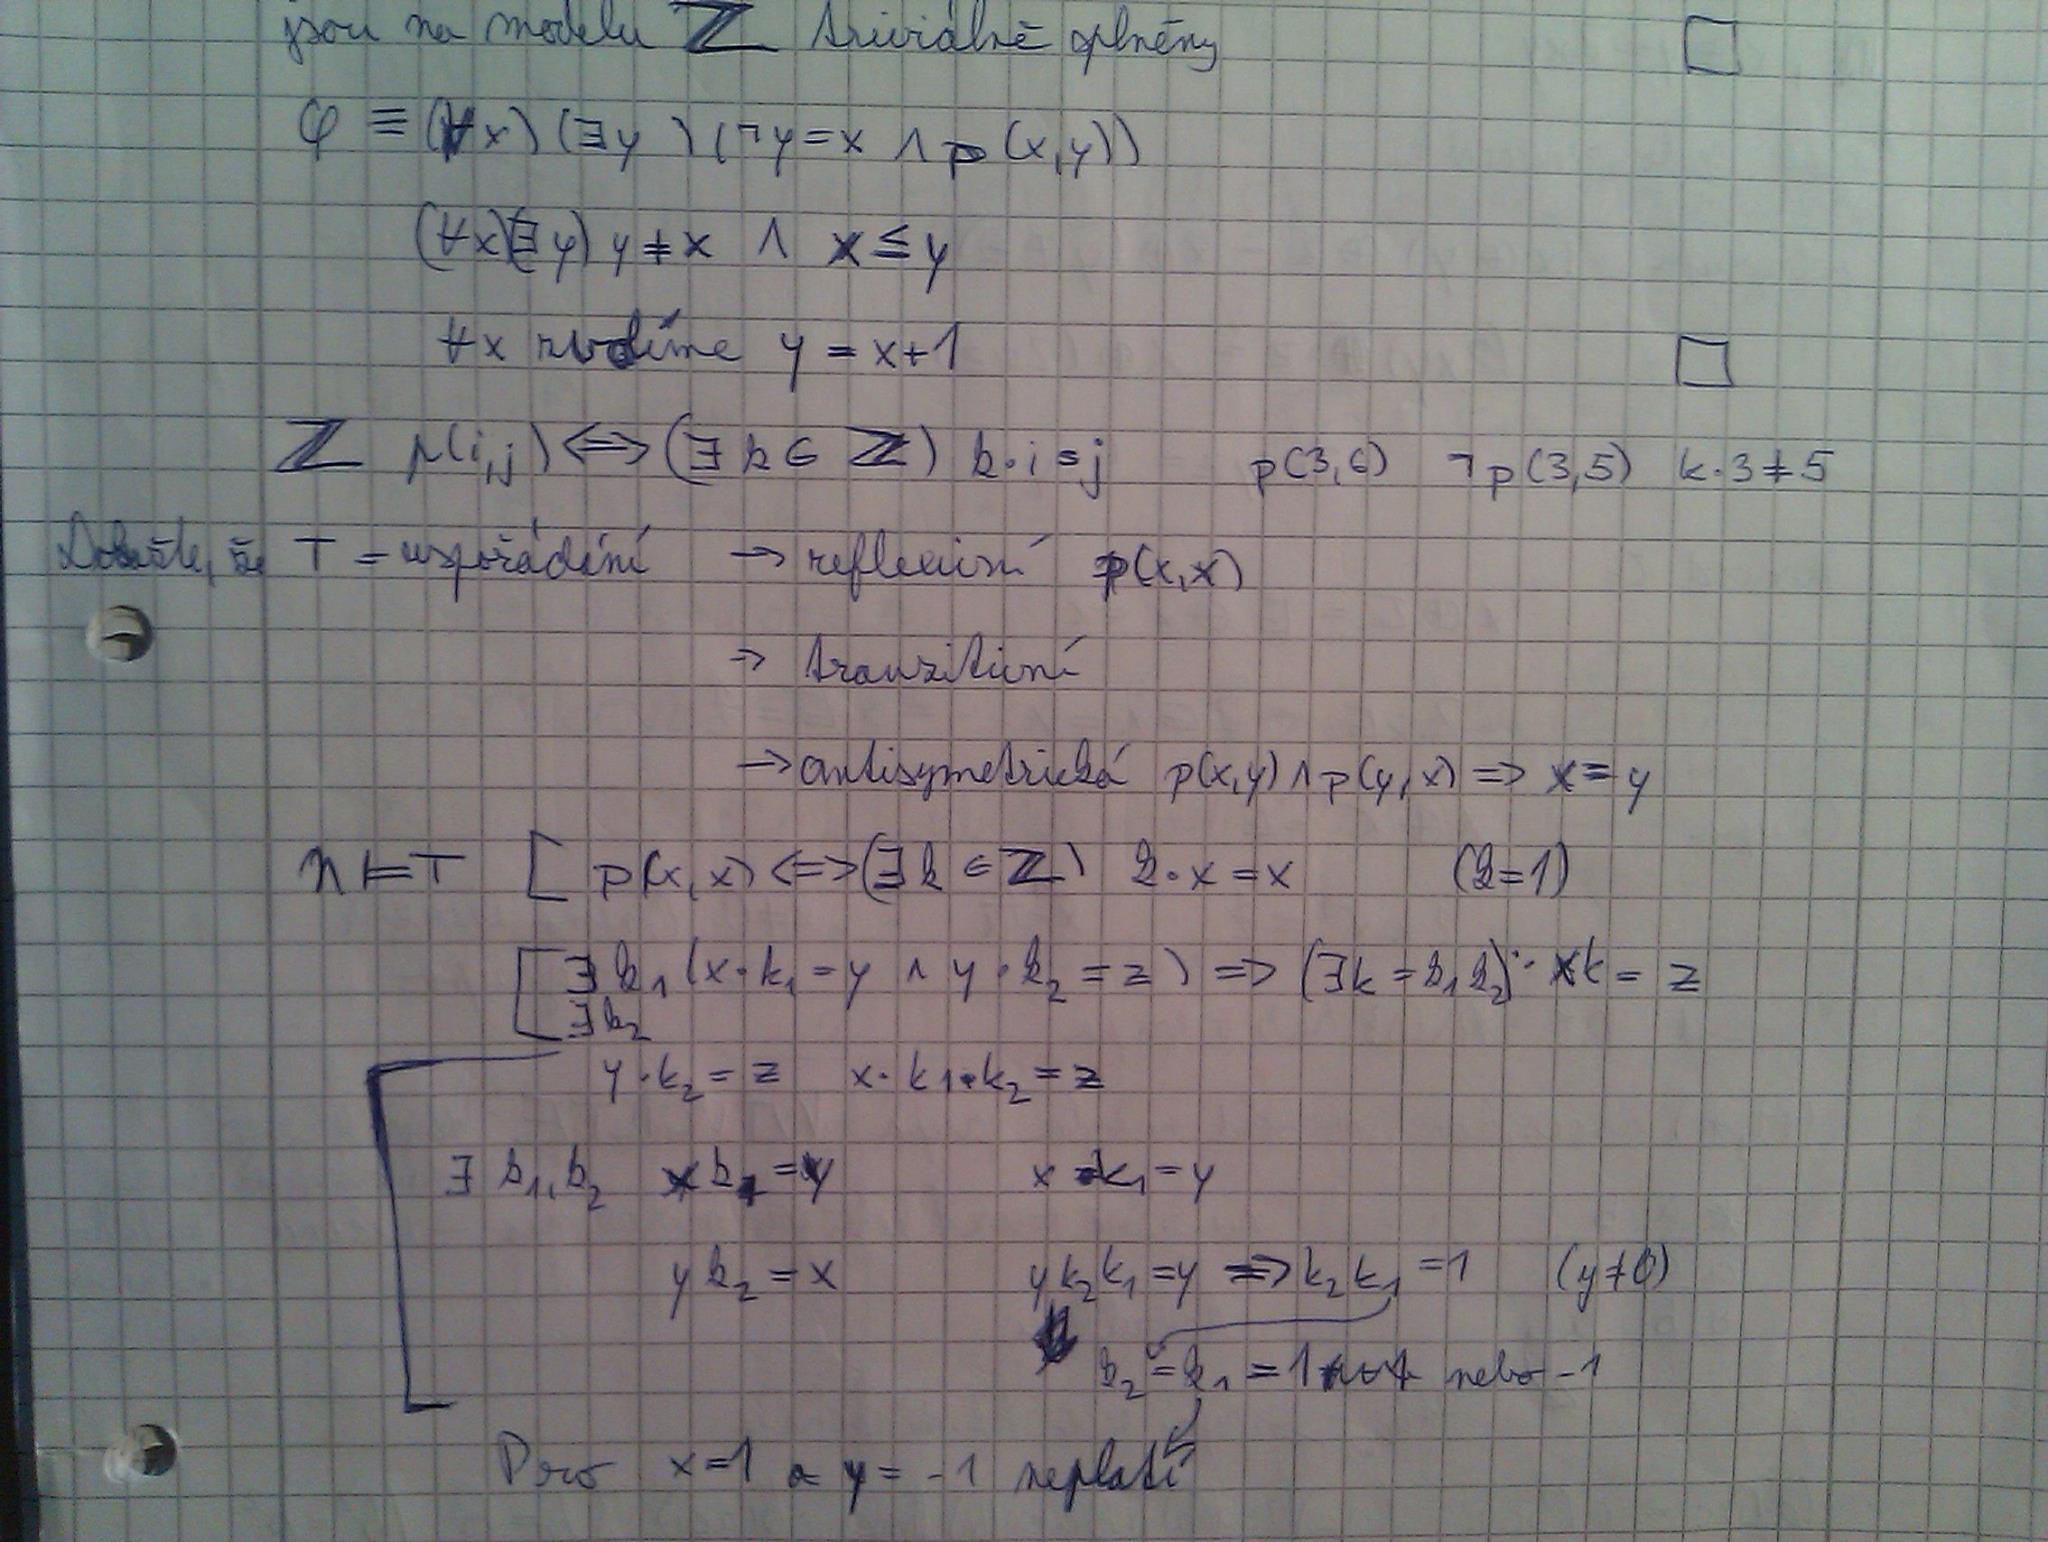 jsou na modelu ℤ triviálně splněny □
φ ≡ (∀x)(∃y)(¬y=x ∧ p(x,y))
(∀x)(∃y) y≠x ∧ x≤y
∀x zvolíme y = x+1 □
ℤ p(i,j) ⟺ (∃k∈ℤ) k·i=j p(3,6) ¬p(3,5) k·3≠5
Dokažte, že T = uspořádání → reflexivní p(x,x)
→ tranzitivní
→ antisymetrická p(x,y)∧p(y,x) ⟹ x=y
n ⊨ T [ p(x,x) ⟺ (∃k∈ℤ) k·x=x (k=1)
[ ∃k₁ (x·k₁=y ∧ y·k₂=z) ⟹ (∃k=k₁k₂): xk=z
∃k₂
y·k₂=z x·k₁·k₂=z
∃ k₁,k₂ xk₁=y x·k₁=y
yk₂=x yk₂k₁=y ⟹ k₂k₁=1 (y≠0)
k₂=k₁=1 nebo -1
Pro x=1 a y=-1 neplatí